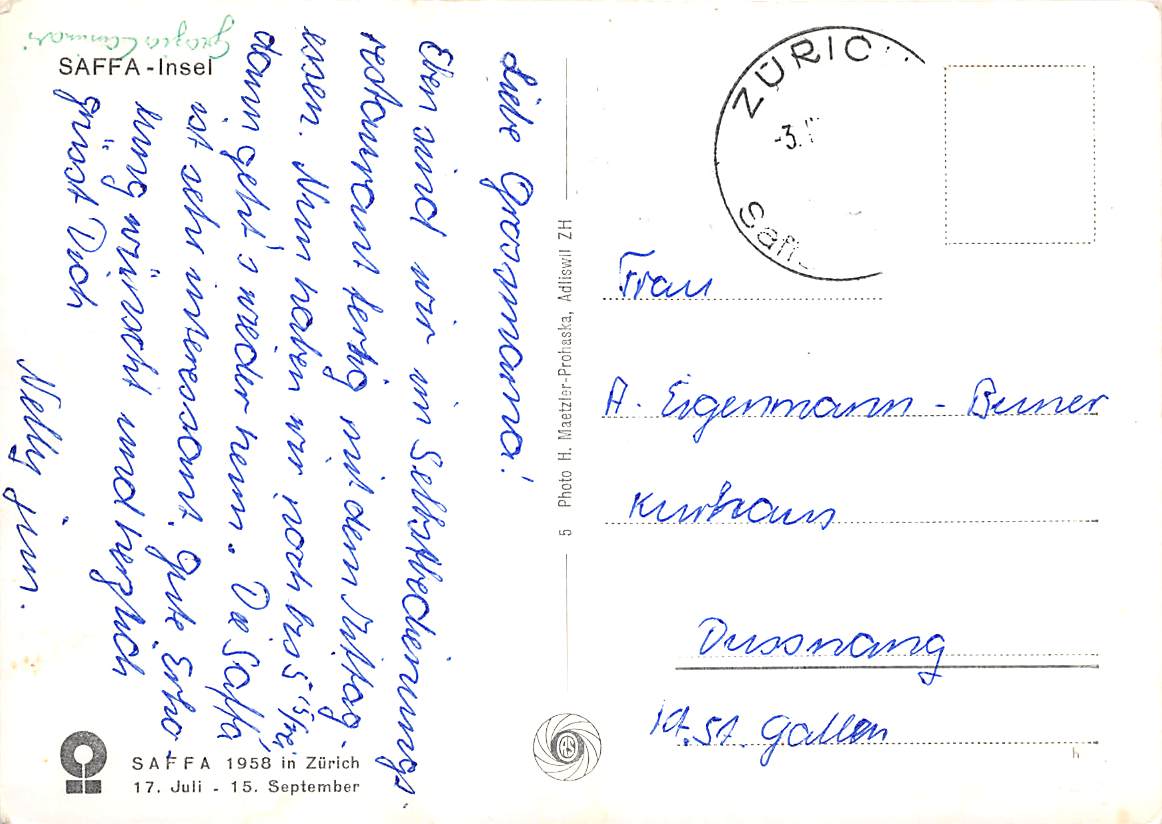 SAFFA-Insel
Liebe Grossmama!
Eben sind wir im Selbstbedienungs-
restaurant fertig mit dem Mittag-
essen. Nun haben wir noch bis 5
dann geht's wieder heim. Die Saffa
ist sehr interessant. Gute Erho-
lung wünscht und herzlich
grüsst Dich
Nelly jun.
SAFFA 1958 in Zürich
17. Juli - 15. September
5 Photo H. Maetzler-Prohaska, Adliswil ZH
ZÜRIC
-3.
Saff
Frau
A. Eigenmann-
Kurhaus
Dussnang
Kt. St. Gallen